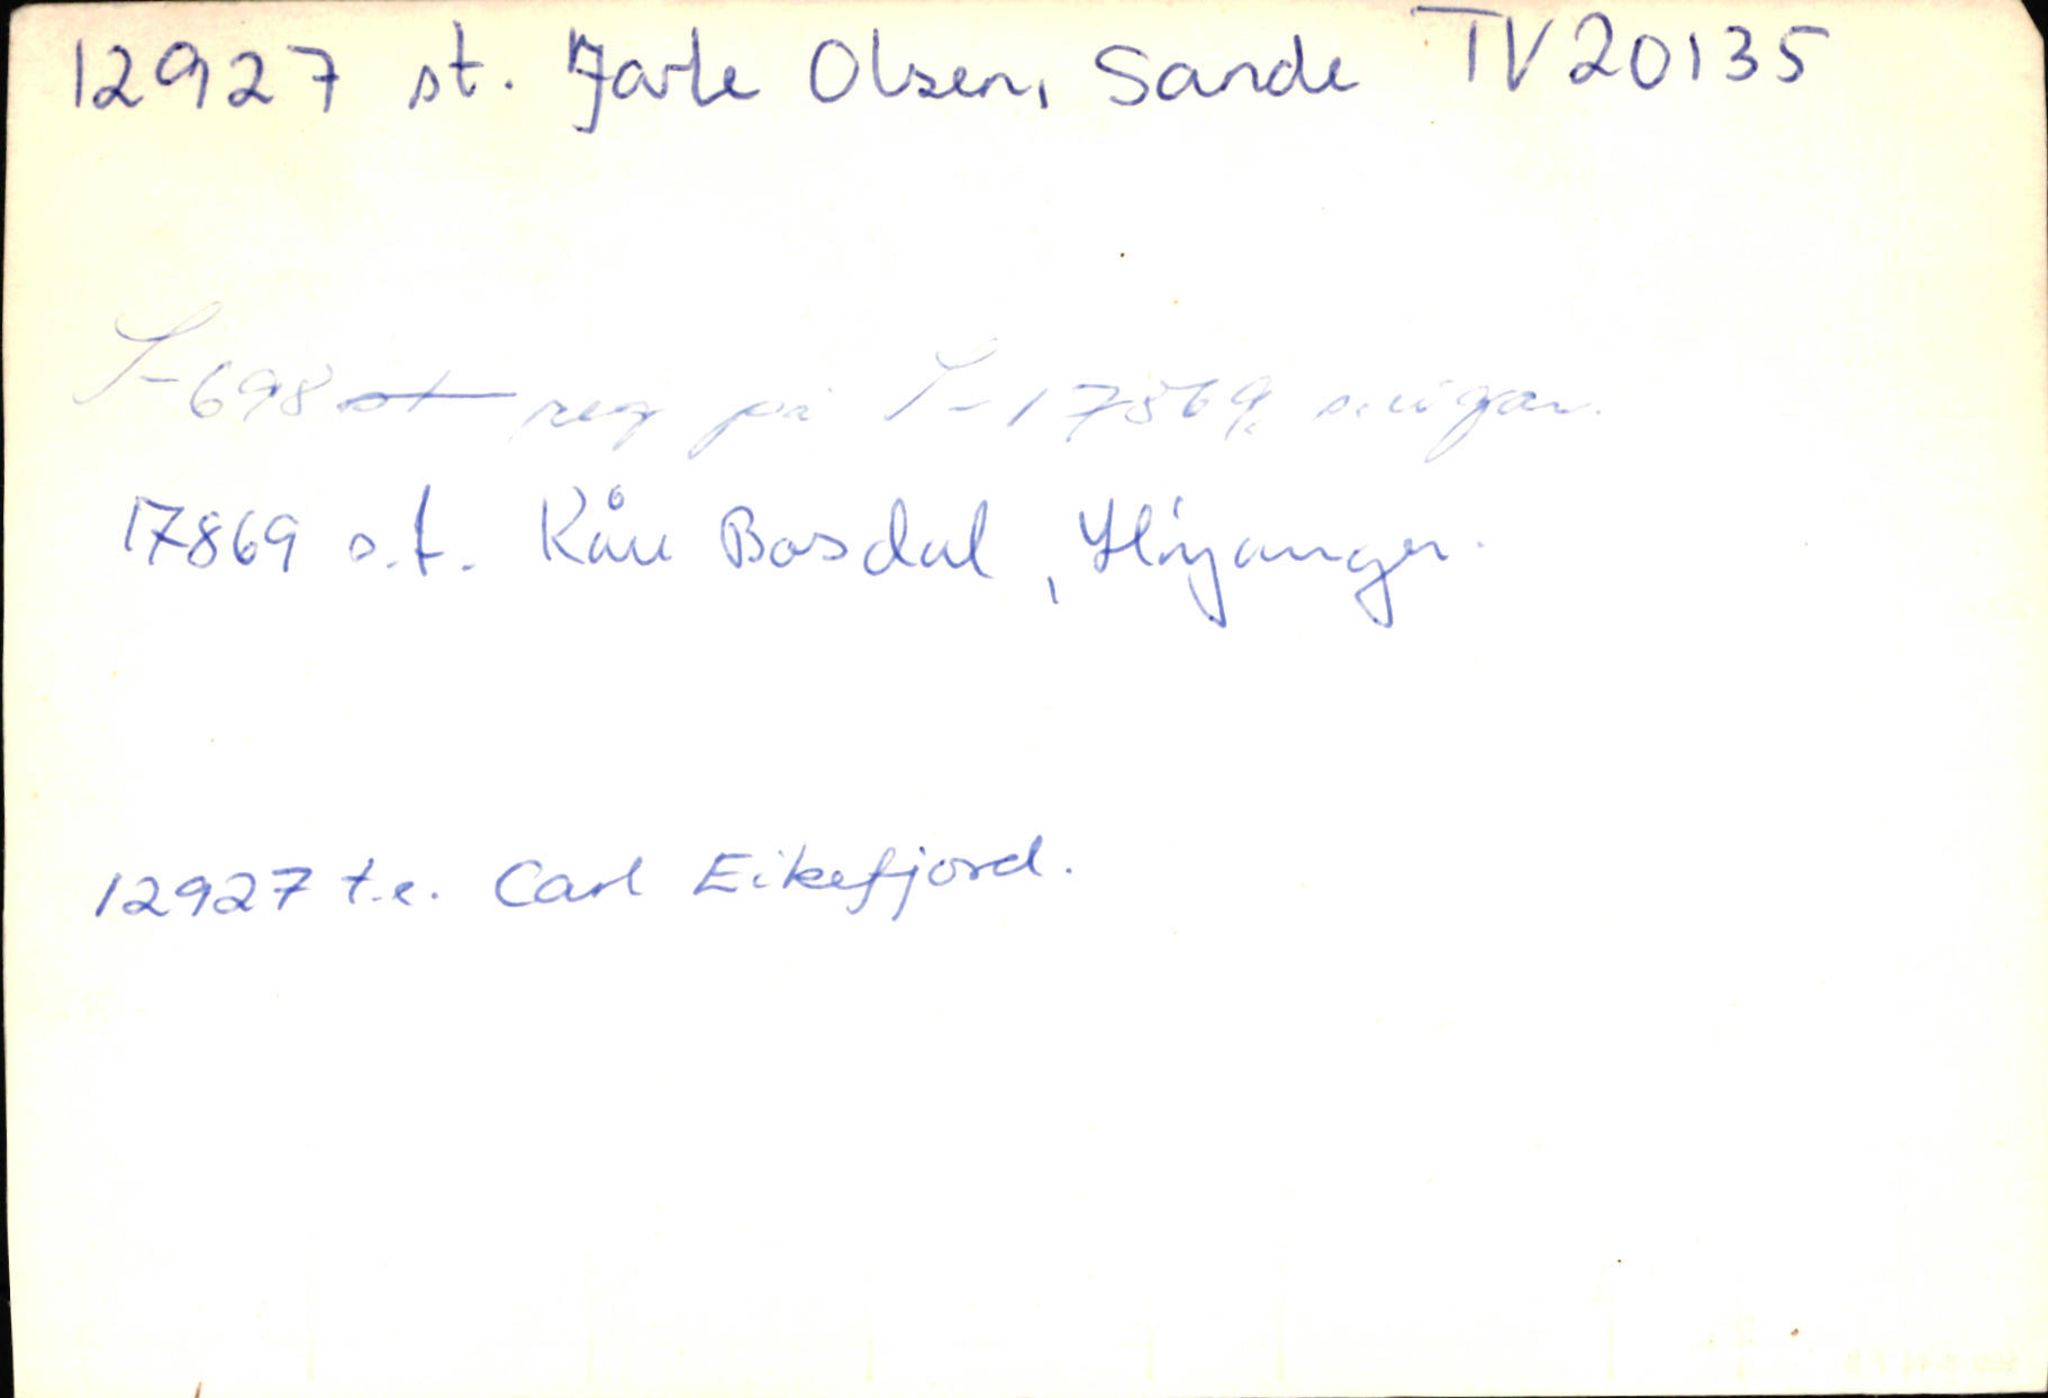 12927 st. Jarle Olsen, Sande TV20135
S-698 st reg på S-17869 s. eigar.
17869 s.t. Kåre Bosdal, Høyanger.
12927 t.e. Carl Eikefjord.